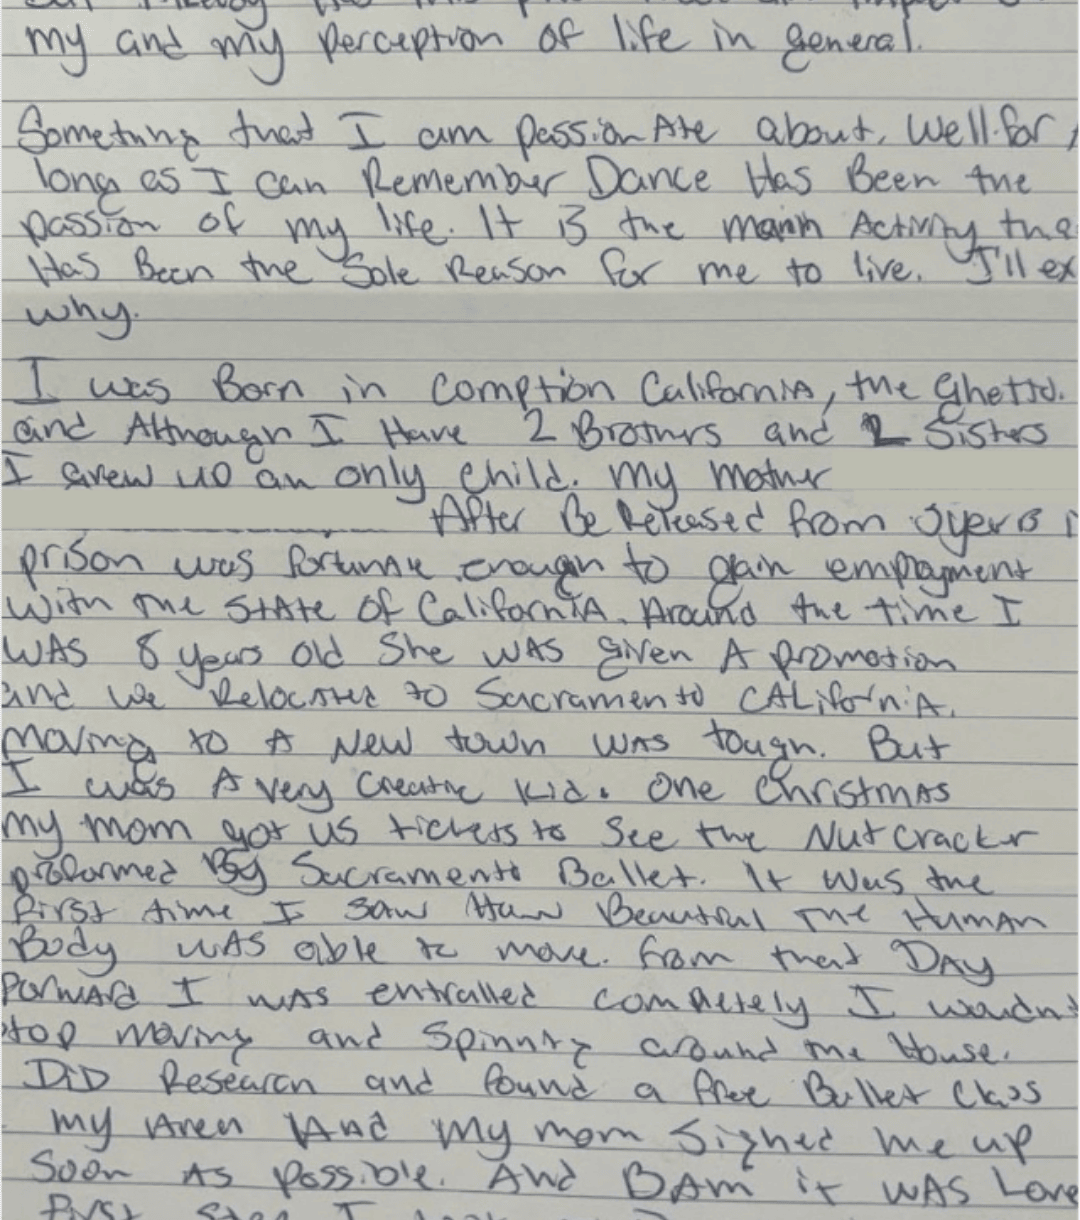 my and my perception of life in general.
Something that I am passionAte about. Well for
long as I can Remember Dance Has Been the
passion of my life. It is the mainh Activity tha
Has Been the Sole Reason for me to live. I'll ex
why.
I was Born in Comption CaliforniA, the Ghetto.
and Although I Have 2 Brothers and 2 Sisters
I grew up an only child. my mother
After Be Released from
prison was fortunate enough to gain employment
With the STATe of CaliforniA. Around the time I
WAS 8 years old She WAS given A promotion
and we Relocated to Sacramento CALiforniA.
moving to A New town WAS tough. But
I was A very Creative Kid. One ChristmAs
my mom got us tickets to See the NutCracker
preformed By Sacramento Ballet. It was the
first time I saw How Beautiful The Human
Body WAS able to move. from that DAy
forwARd I WAS entralled completely I wouldn
stop moving and Spinning around the House.
DiD Research and found a free Ballet Class
my Area And my mom Signed me up
Soon AS possible. And BAm it WAS Love
first step I